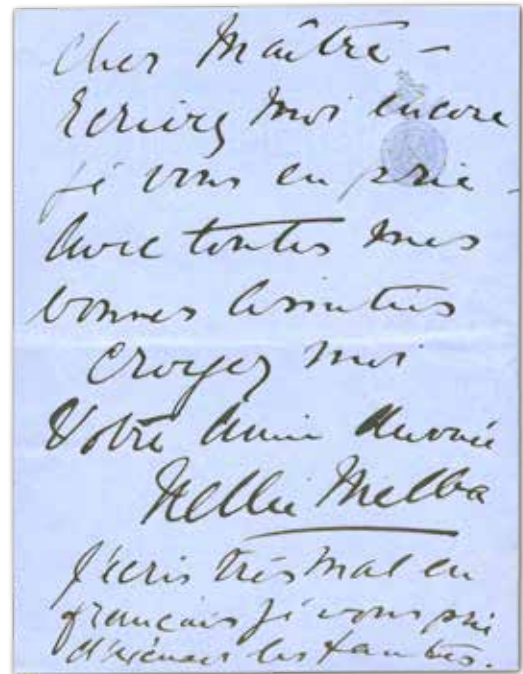 Cher Maître –
Ecrivez moi encore
je vous en prie –
Avec toutes mes
bonnes amitiés
Croyez moi
Votre amie dévouée
Nellie Melba
J'écris très mal en
français je vous prie
d'excuser les fautes.